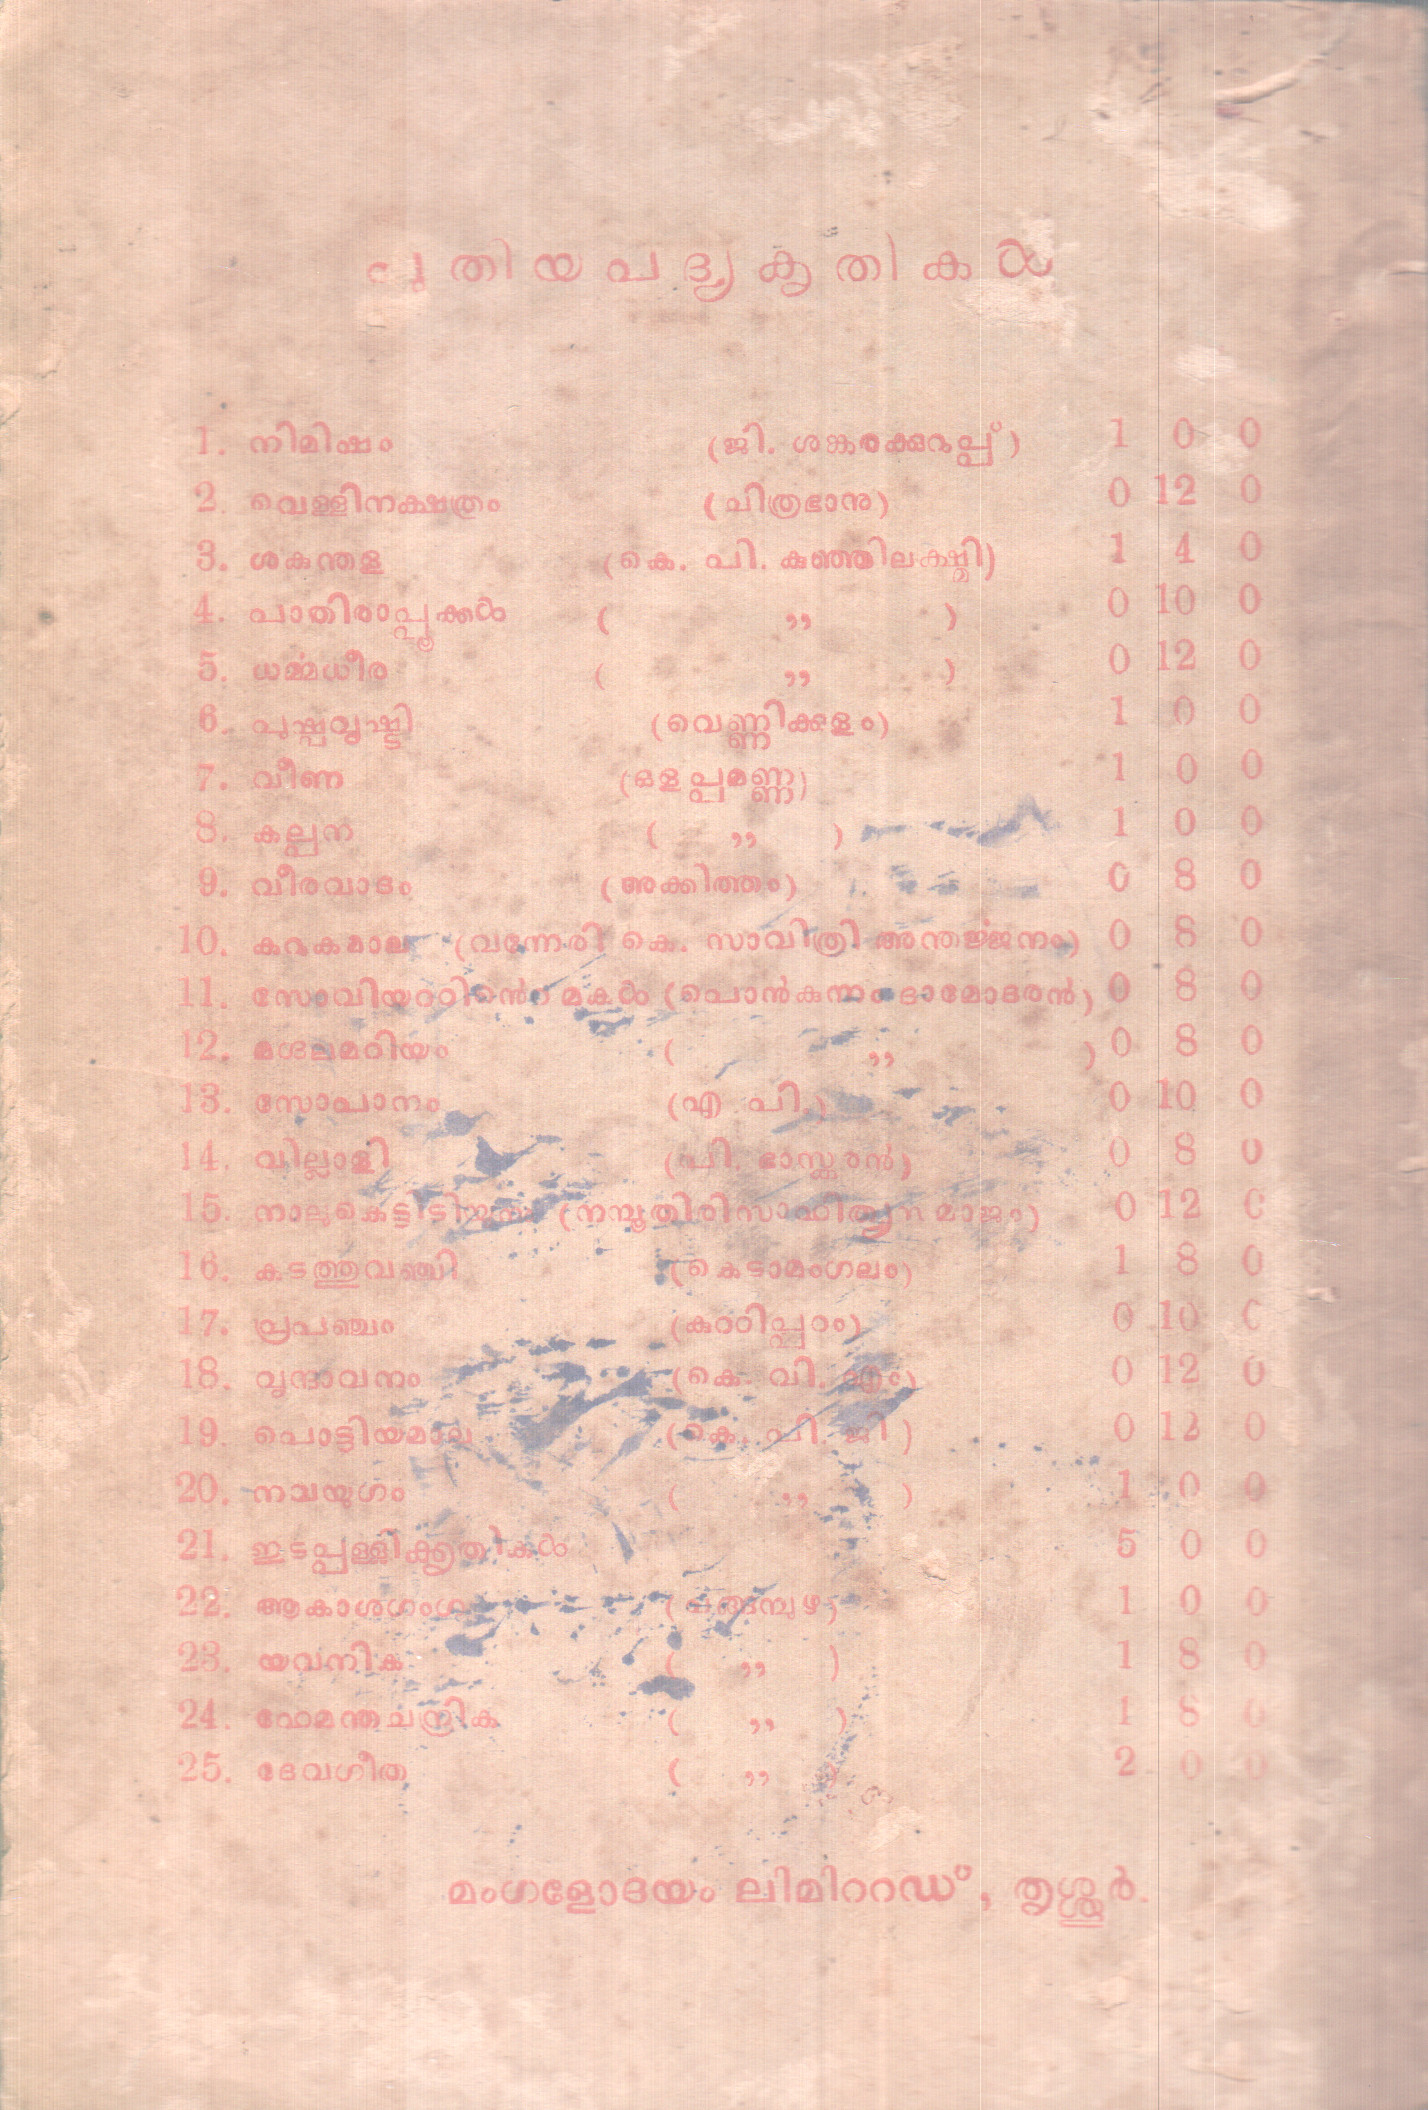 പുതിയപദ്യകൃതികൾ
1. നിമിഷം (ജി. ശങ്കരക്കുറുപ്പ്) 1 0 0
2. വെള്ളിനക്ഷത്രം (ചിത്രഭാനു) 0 12 0
3. ശകുന്തള (കെ. പി. കുഞ്ഞിലക്ഷ്മി) 1 4 0
4. പാതിരാപ്പൂക്കൾ ( ,, ) 0 10 0
5. ധൎമ്മധീര ( ,, ) 0 12 0
6. പുഷ്പവൃഷ്ടി (വെണ്ണിക്കുളം) 1 0 0
7. വീണ (ഒളപ്പമണ്ണ) 1 0 0
8. കല്പന ( ,, ) 1 0 0
9. വീരവാദം (അക്കിത്തം) 0 8 0
10. കറുകമാല (വന്നേരി കെ. സാവിത്രി അന്തൎജ്ജനം) 0 8 0
11. സോവിയററിന്റെ മകൾ (പൊൻകുന്നം ദാമോദരൻ) 0 8 0
12. മഗ്ദലമറിയം ( ,, ) 0 8 0
13. സോപാനം (എ പി.) 0 10 0
14. വില്ലാളി (പി. ഭാസ്കരൻ) 0 8 0
15. നാലുകെട്ടിടിയുന്നു (നമ്പൂതിരിസാഹിത്യസമാജം) 0 12 0
16. കടത്തുവഞ്ചി (കെടാമംഗലം) 1 8 0
17. പ്രപഞ്ചം (കുററിപ്പുറം) 0 10 0
18. വൃന്ദാവനം (കെ. വി. എം) 0 12 0
19. പൊട്ടിയമാല (കെ. പി. ജി) 0 12 0
20. നവയുഗം ( ,, ) 1 0 0
21. ഇടപ്പള്ളിക്കൃതികൾ 5 0 0
22. ആകാശഗംഗ (ചങ്ങമ്പുഴ) 1 0 0
23. യവനിക ( ,, ) 1 8 0
24. ഹേമന്തചന്ദ്രിക ( ,, ) 1 8 0
25. ദേവഗീത ( ,, ) 2 0 0
മംഗളോദയം ലിമിററഡ്, തൃശ്ശൂർ.